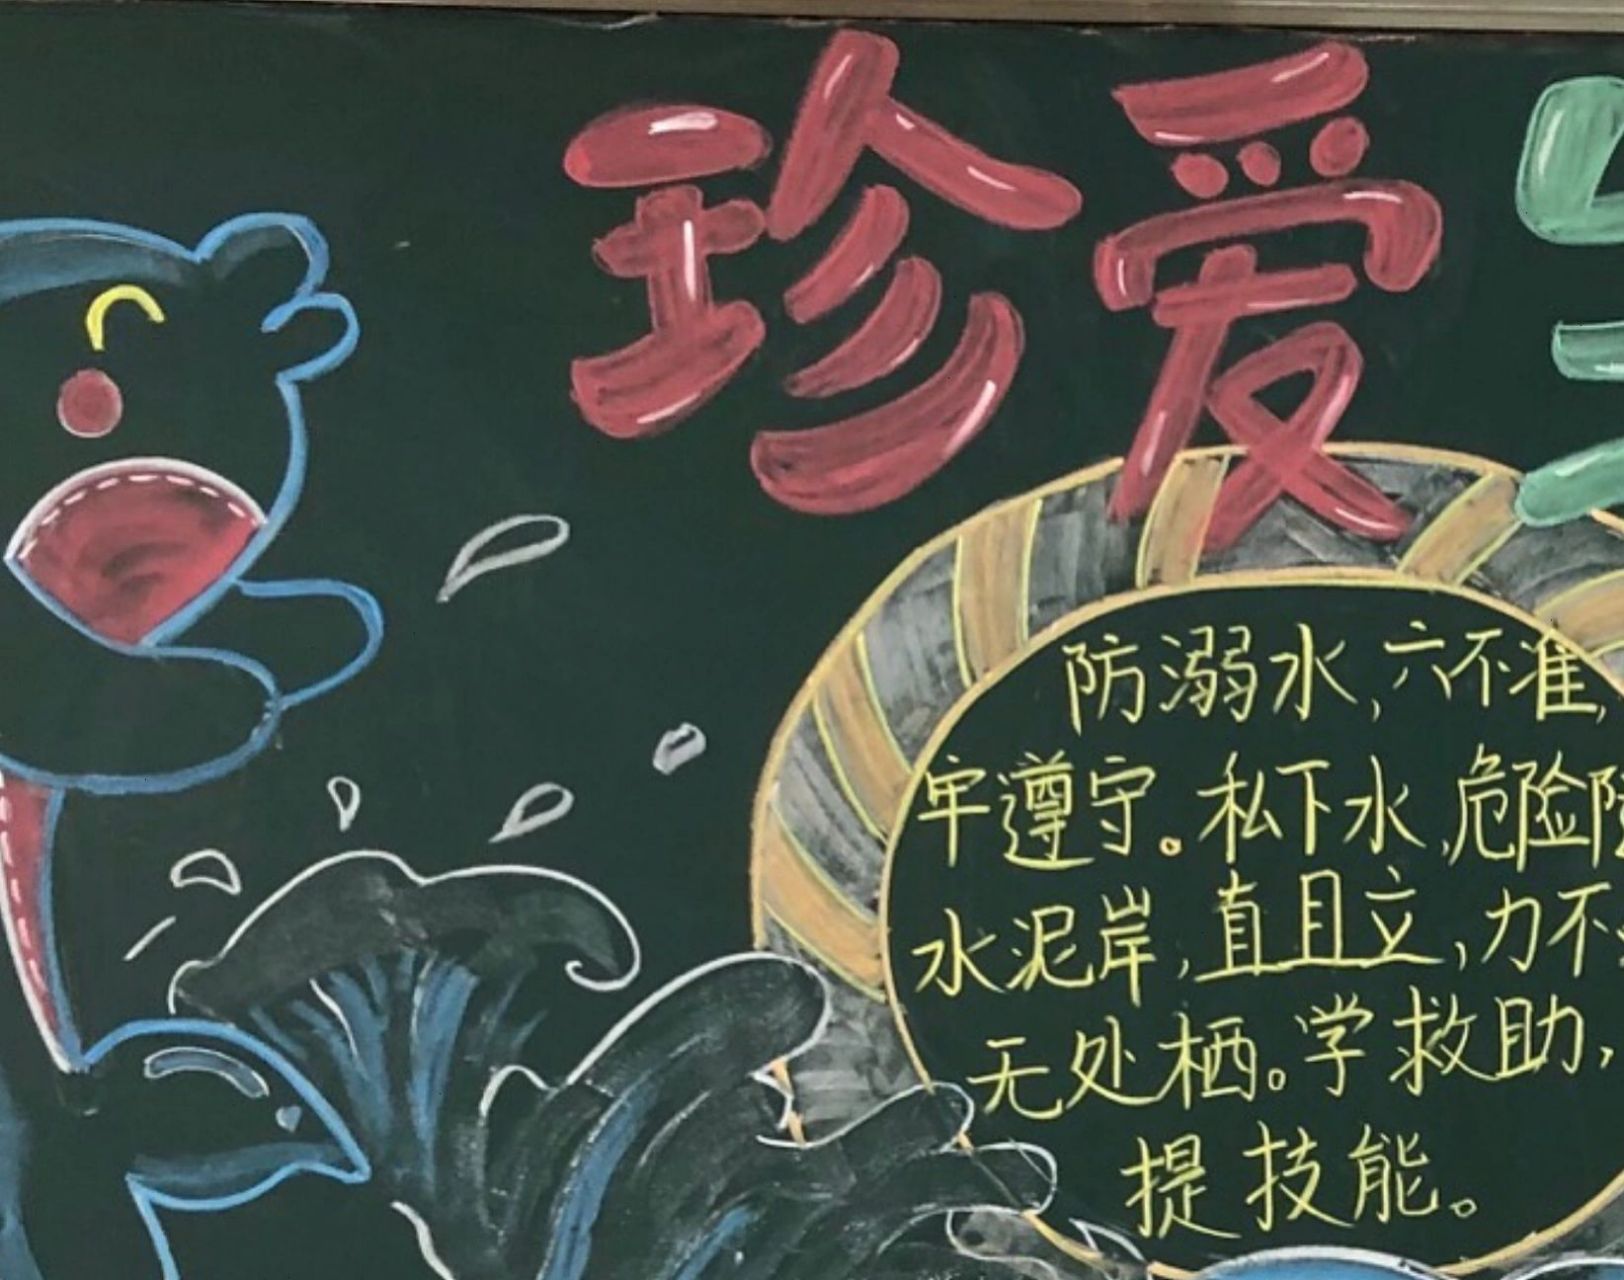 珍爱
防溺水,六不准,
牢遵守。私下水,危险
水泥岸,直且立,力不
无处栖。学救助,
提技能。